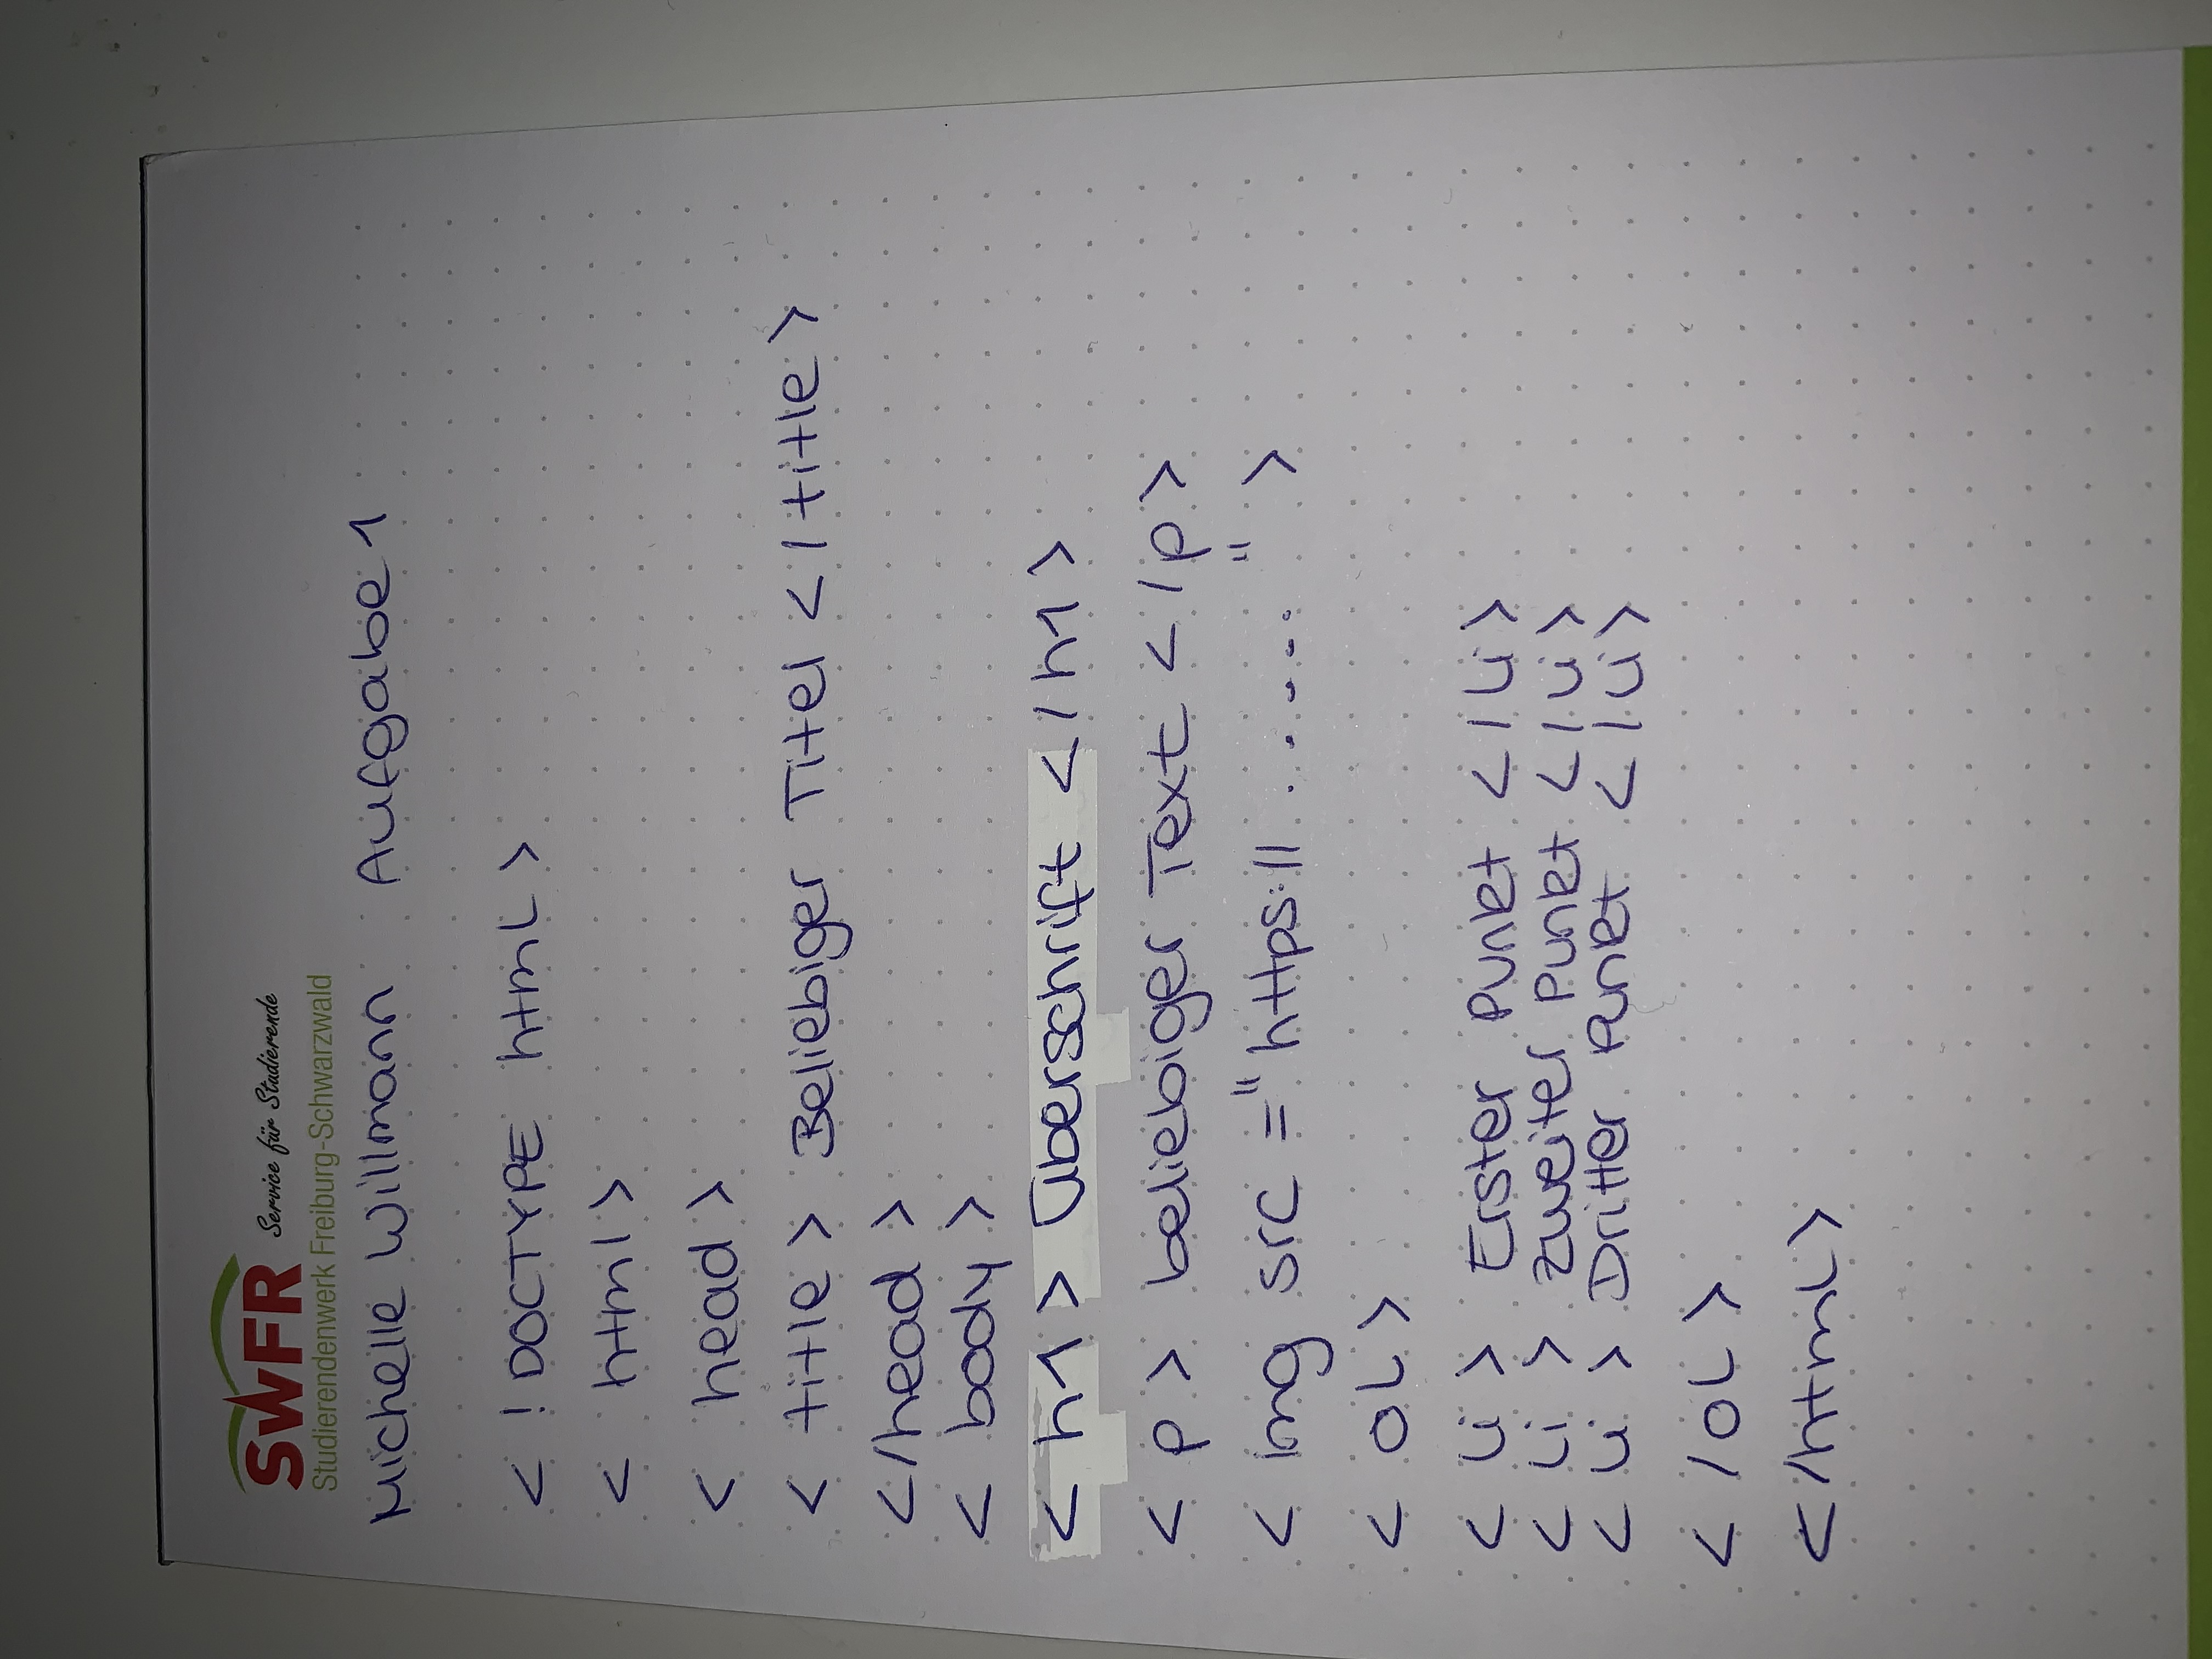 SWFR Service für Studierende
Studierendenwerk Freiburg-Schwarzwald
Michelle Willmann Aufgabe 1
< ! DOCTYPE html >
< html >
< head >
< title > Beliebiger Titel < / title >
</head >
< body >
< h1 > Überschrift < / h1 >
< p > beliebiger Text < / p >
< img src = "https:// ...... " >
< ol >
< li > Erster Punkt < / li >
< li > zweiter Punkt < / li >
< li > Dritter Punkt < / li >
< / ol >
</html>